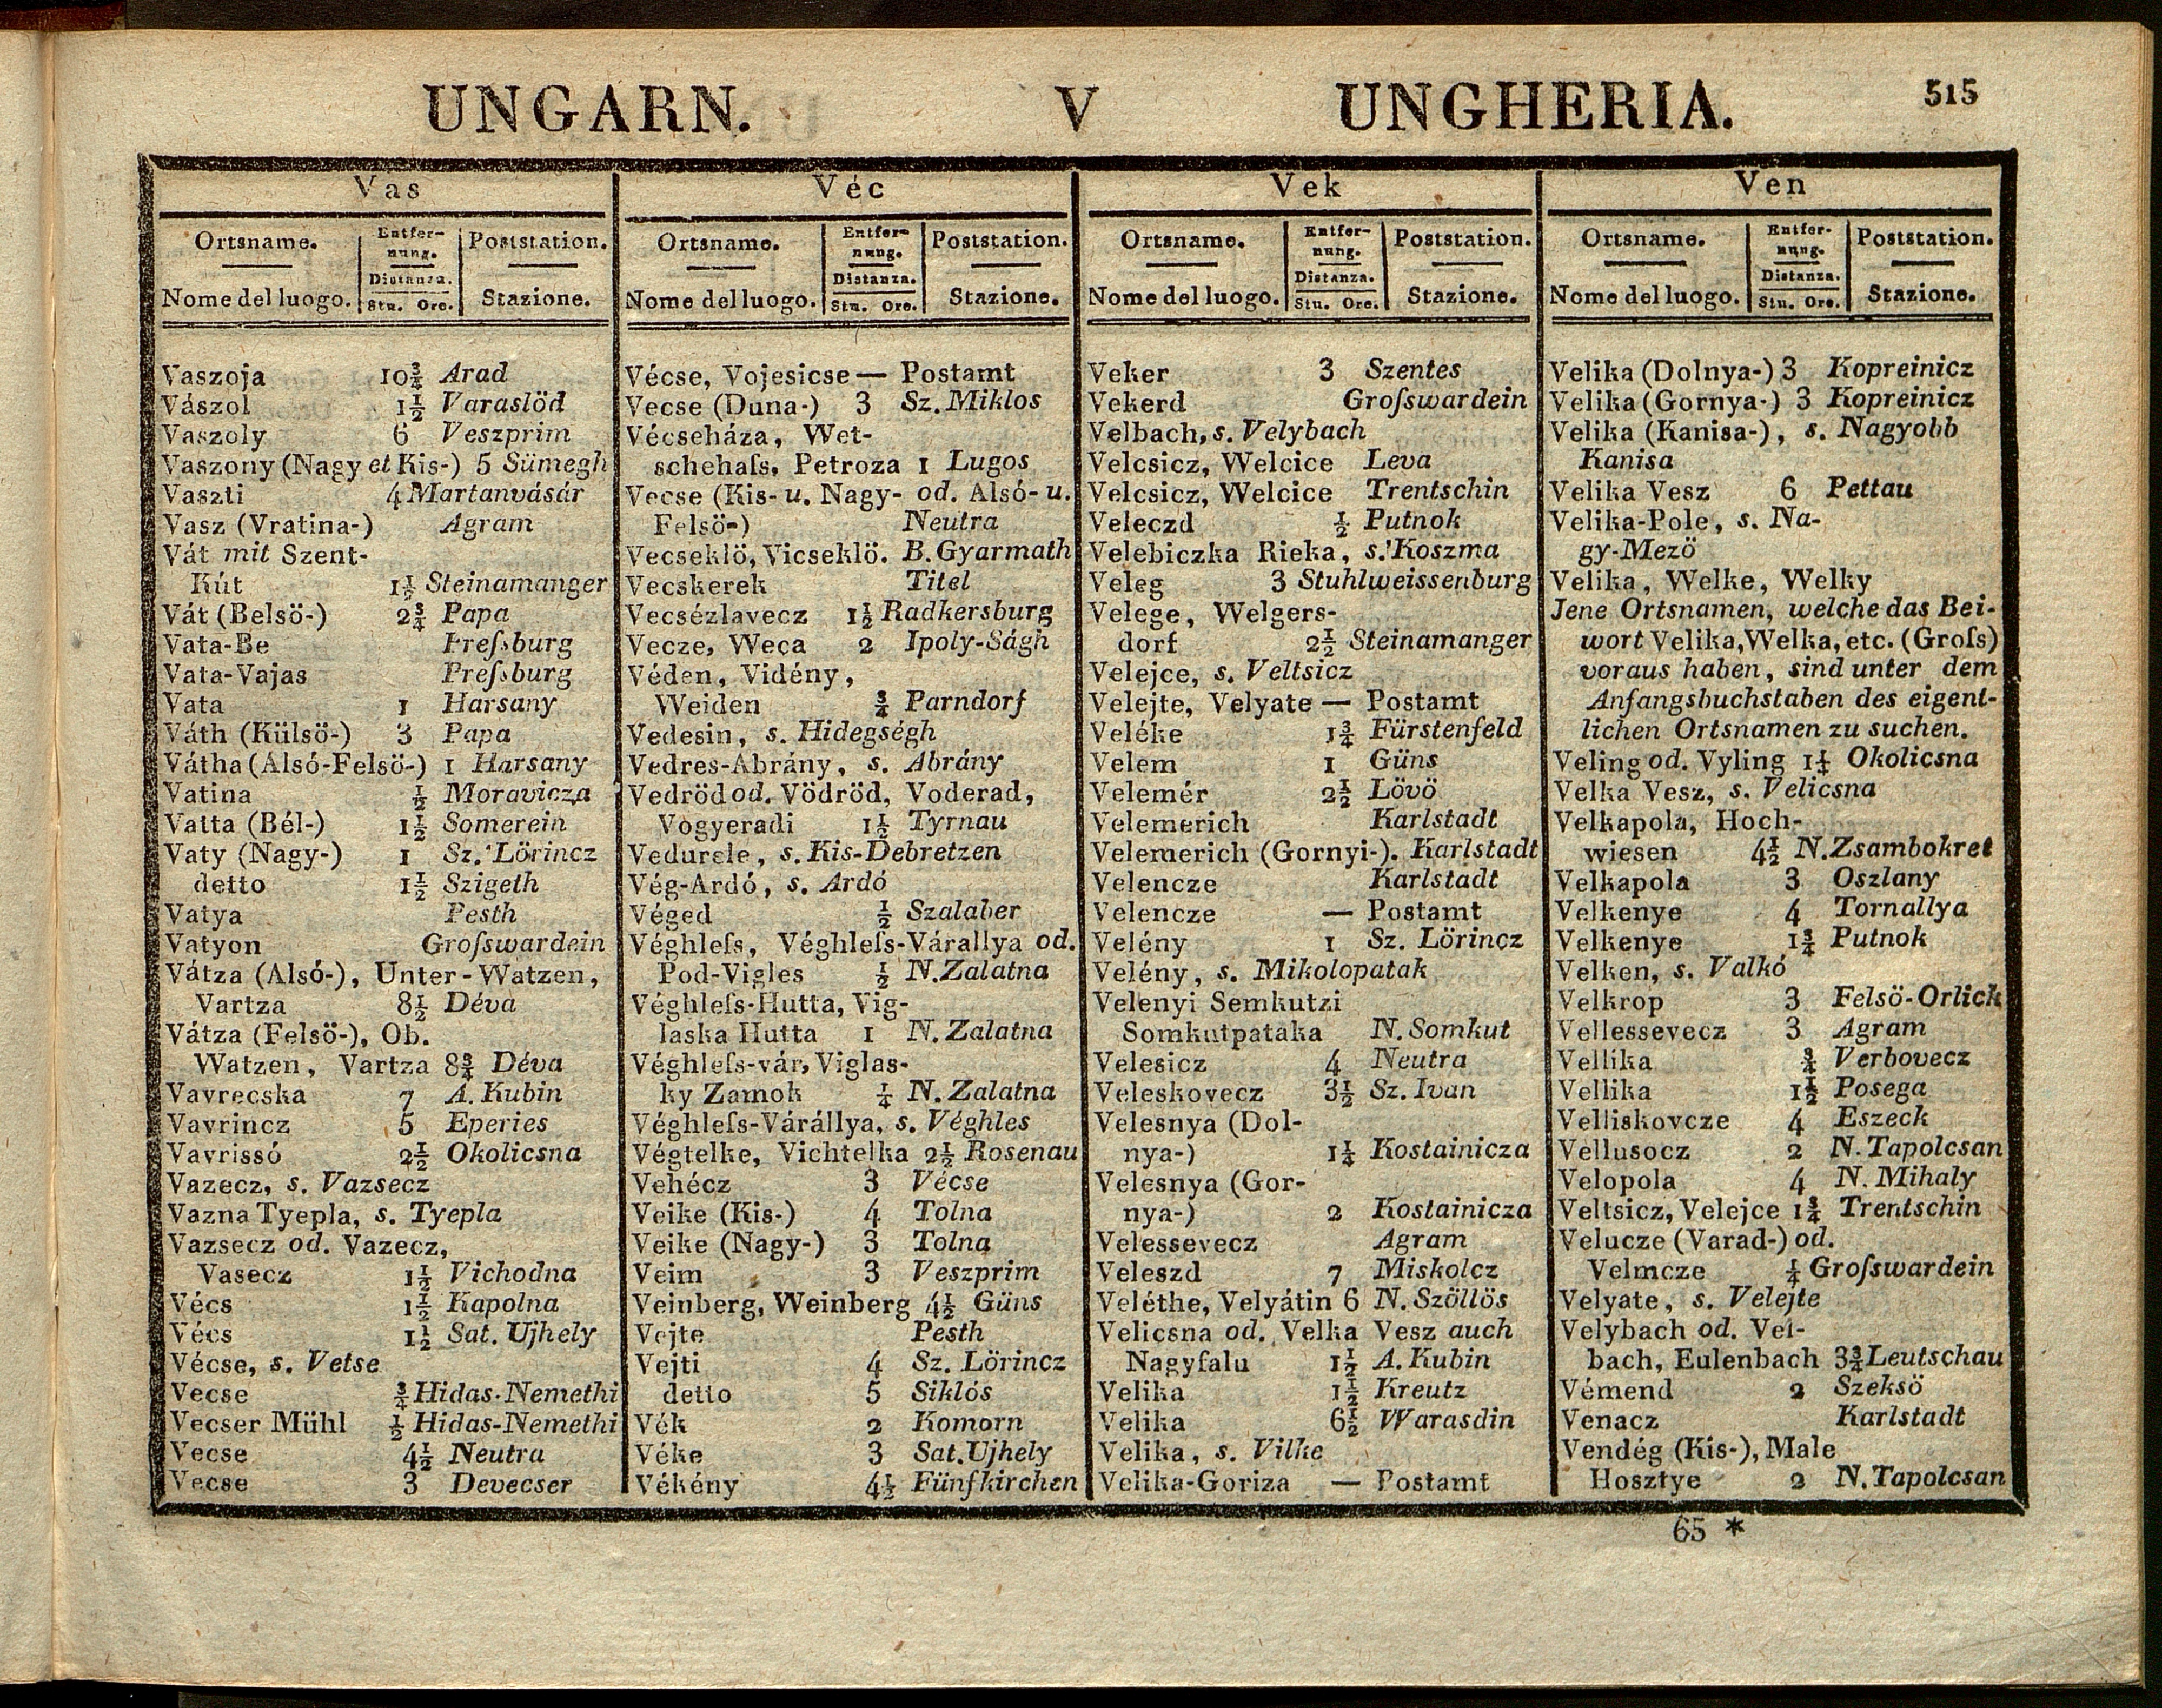 UNGARN. V UNGHERIA. 515
Vas
Ortsname. Entfer- Poststation.
nung.
Distanza.
Nome del luogo. Stu. Ore. Stazione.
Vaszoja 10¾ Arad
Vászol 1½ Varaslöd
Vaszoly 6 Veszprim
Vaszony (Nagy et Kis-) 5 Sümegh
Vaszti 4 Martanvásár
Vasz (Vratina-) Agram
Vát mit Szent-
Kút 1½ Steinamanger
Vát (Belsö-) 2¾ Papa
Vata-Be Preſsburg
Vata-Vajas Preſsburg
Vata 1 Harsany
Váth (Külsö-) 3 Papa
Vátha (Alsó-Felsö-) 1 Harsany
Vatina ½ Moravicza
Vatta (Bél-) 1½ Somerein
Vaty (Nagy-) 1 Sz. Lörincz
detto 1½ Szigeth
Vatya Pesth
Vatyon Groſswardein
Vátza (Alsó-), Unter-Watzen,
Vartza 8½ Déva
Vátza (Felsö-), Ob.
Watzen, Vartza 8¾ Déva
Vavrecska 7 A. Kubin
Vavrincz 5 Eperies
Vavrissó 2½ Okolicsna
Vazecz, s. Vazsecz
Vazna Tyepla, s. Tyepla
Vazsecz od. Vazecz,
Vasecz 1½ Vichodna
Vécs 1½ Kapolna
Vécs 1½ Sat. Ujhely
Vécse, s. Vetse
Vecse ¾ Hidas-Nemethi
Vecser Mühl ½ Hidas-Nemethi
Vecse 4½ Neutra
Vecse 3 Devecser
Véc
Ortsname. Entfer- Poststation.
nung.
Distanza.
Nome del luogo. Stu. Ore. Stazione.
Vécse, Vojesicse — Postamt
Vecse (Duna-) 3 Sz. Miklos
Vécseháza, Wet-
schehaſs, Petroza 1 Lugos
Vecse (Kis- u. Nagy- od. Alsó- u.
Felsö-) Neutra
Vecseklö, Vicseklö. B. Gyarmath
Vecskerek Titel
Vecsézlavecz 1½ Radkersburg
Vecze, Weca 2 Ipoly-Ságh
Véden, Vidény,
Weiden ¾ Parndorf
Vedesin, s. Hidegségh
Vedres-Abrány, s. Abrány
Vedröd od. Vödröd, Voderad,
Vogyeradi 1½ Tyrnau
Vedurele, s. Kis-Debretzen
Vég-Ardó, s. Ardó
Véged ½ Szalaber
Véghleſs, Véghleſs-Várallya od.
Pod-Vigles ½ N. Zalatna
Véghleſs-Hutta, Vig-
laska Hutta 1 N. Zalatna
Véghleſs-vár, Viglas-
ky Zamok ¼ N. Zalatna
Véghleſs-Várállya, s. Véghles
Végtelke, Vichtelka 2½ Rosenau
Vehécz 3 Vécse
Veike (Kis-) 4 Tolna
Veike (Nagy-) 3 Tolna
Veim 3 Veszprim
Veinberg, Weinberg 4½ Güns
Vejte Pesth
Vejti 4 Sz. Lörincz
detto 5 Siklós
Vék 2 Komorn
Véke 3 Sat. Ujhely
Vékény 4½ Fünfkirchen
Vek
Ortsname. Entfer- Poststation.
nung.
Distanza.
Nome del luogo. Stu. Ore. Stazione.
Veker 3 Szentes
Vekerd Groſswardein
Velbach, s. Velybach
Velcsicz, Welcice Leva
Velcsicz, Welcice Trentschin
Veleczd ½ Putnok
Velebiczka Rieka, s. Koszma
Veleg 3 Stuhlweissenburg
Velege, Welgers-
dorf 2½ Steinamanger
Velejce, s. Veltsicz
Velejte, Velyate — Postamt
Veléke 1¾ Fürstenfeld
Velem 1 Güns
Velemér 2½ Lövö
Velemerich Karlstadt
Velemerich (Gornyi-). Karlstadt
Velencze Karlstadt
Velencze — Postamt
Velény 1 Sz. Lörincz
Velény, s. Mikolopatak
Velenyi Semkutzi
Somkutpataka N. Somkut
Velesicz 4 Neutra
Veleskovecz 3½ Sz. Ivan
Velesnya (Dol-
nya-) 1¼ Kostainicza
Velesnya (Gor-
nya-) 2 Kostainicza
Velessevecz Agram
Veleszd 7 Miskolcz
Veléthe, Velyátin 6 N. Szöllös
Velicsna od. Velka Vesz auch
Nagyfalu 1½ A. Kubin
Velika 1½ Kreutz
Velika 6½ Warasdin
Velika, s. Vilke
Velika-Goriza — Postamt
Ven
Ortsname. Entfer- Poststation.
nung.
Distanza.
Nome del luogo. Stu. Ore. Stazione.
Velika (Dolnya-) 3 Kopreinicz
Velika (Gornya-) 3 Kopreinicz
Velika (Kanisa-), s. Nagyobb
Kanisa
Velika Vesz 6 Pettau
Velika-Pole, s. Na-
gy-Mezö
Velika, Welke, Welky
Jene Ortsnamen, welche das Bei-
wort Velika, Welka, etc. (Groſs)
voraus haben, sind unter dem
Anfangsbuchstaben des eigent-
lichen Ortsnamen zu suchen.
Veling od. Vyling 1¼ Okolicsna
Velka Vesz, s. Velicsna
Velkapola, Hoch-
wiesen 4½ N. Zsambokret
Velkapola 3 Oszlany
Velkenye 4 Tornallya
Velkenye 1¾ Putnok
Velken, s. Valkó
Velkrop 3 Felsö-Orlick
Vellessevecz 3 Agram
Vellika ¾ Verbovecz
Vellika 1½ Posega
Velliskovcze 4 Eszeck
Vellusocz 2 N. Tapolcsan
Velopola 4 N. Mihaly
Veltsicz, Velejce 1¾ Trentschin
Velucze (Varad-) od.
Velmcze ¼ Groſswardein
Velyate, s. Velejte
Velybach od. Vel-
bach, Eulenbach 3¾ Leutschau
Vémend 2 Szeksö
Venacz Karlstadt
Vendég (Kis-), Male
Hosztye 2 N. Tapolcsan
65 *